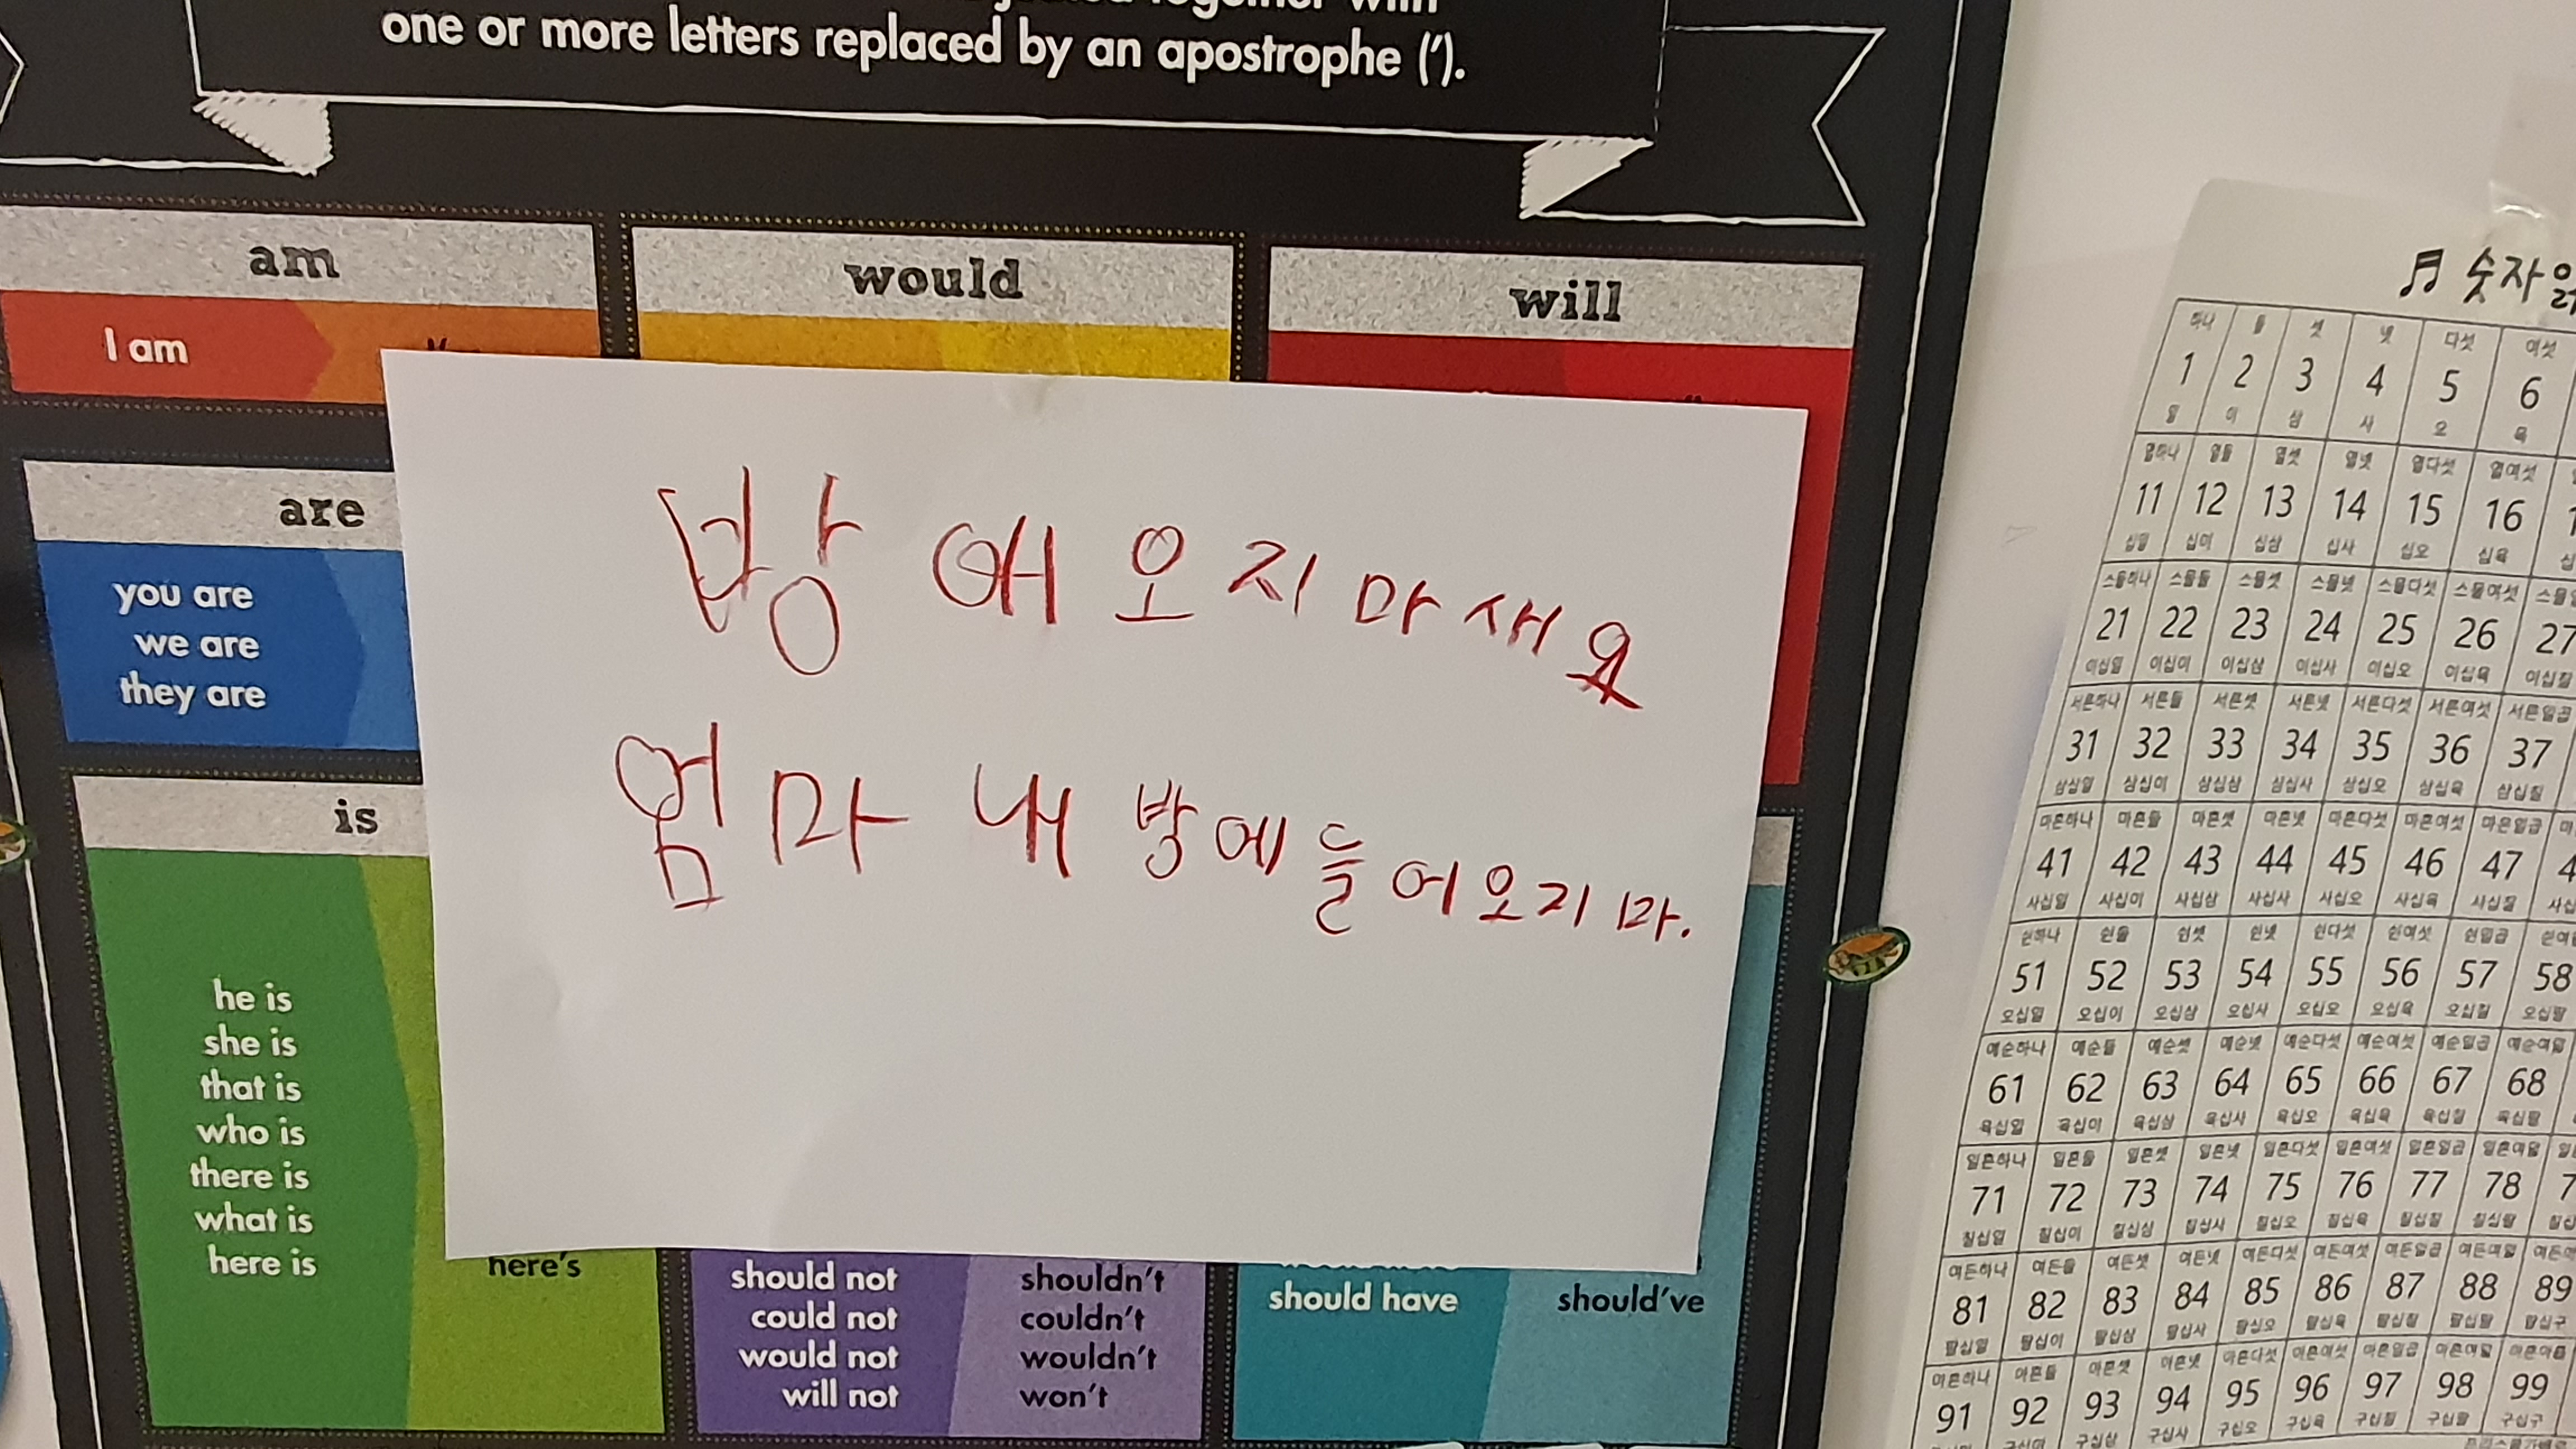 one or more letters replaced by an apostrophe (').
am
would
will
I am
are
you are
we are
they are
is
he is
she is
that is
who is
there is
what is
here is
here's
방 애 오지 마새요
엄마 내 방에 들어오지 마.
should not shouldn't
could not couldn't
would not wouldn't
will not won't
should have should've
숫자
하나 둘 셋 넷 다섯 여섯
1 2 3 4 5 6
일 이 삼 사 오 육
열하나 열둘 열셋 열넷 열다섯 열여섯
11 12 13 14 15 16
십일 십이 십삼 십사 십오 십육
스물하나 스물둘 스물셋 스물넷 스물다섯 스물여섯
21 22 23 24 25 26 27
이십일 이십이 이십삼 이십사 이십오 이십육 이십칠
서른하나 서른둘 서른셋 서른넷 서른다섯 서른여섯 서른일곱
31 32 33 34 35 36 37
삼십일 삼십이 삼십삼 삼십사 삼십오 삼십육 삼십칠
마흔하나 마흔둘 마흔셋 마흔넷 마흔다섯 마흔여섯 마흔일곱
41 42 43 44 45 46 47
사십일 사십이 사십삼 사십사 사십오 사십육 사십칠
쉰하나 쉰둘 쉰셋 쉰넷 쉰다섯 쉰여섯 쉰일곱
51 52 53 54 55 56 57 58
오십일 오십이 오십삼 오십사 오십오 오십육 오십칠 오십팔
예순하나 예순둘 예순셋 예순넷 예순다섯 예순여섯 예순일곱 예순여덟
61 62 63 64 65 66 67 68
육십일 육십이 육십삼 육십사 육십오 육십육 육십칠 육십팔
일흔하나 일흔둘 일흔셋 일흔넷 일흔다섯 일흔여섯 일흔일곱 일흔여덟
71 72 73 74 75 76 77 78
칠십일 칠십이 칠십삼 칠십사 칠십오 칠십육 칠십칠 칠십팔
여든하나 여든둘 여든셋 여든넷 여든다섯 여든여섯 여든일곱 여든여덟
81 82 83 84 85 86 87 88 89
팔십일 팔십이 팔십삼 팔십사 팔십오 팔십육 팔십칠 팔십팔 팔십구
아흔하나 아흔둘 아흔셋 아흔넷 아흔다섯 아흔여섯 아흔일곱 아흔여덟 아흔아홉
91 92 93 94 95 96 97 98 99
구십이 구십삼 구십사 구십오 구십육 구십칠 구십팔 구십구